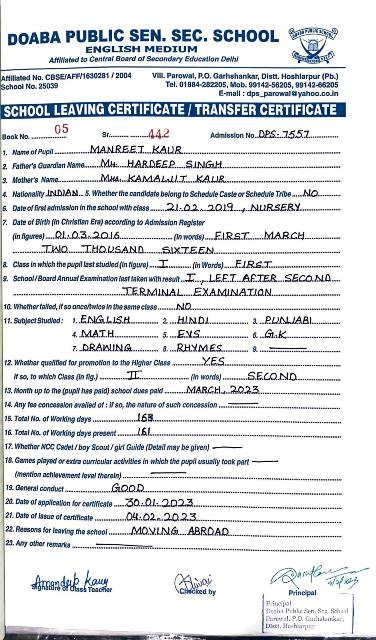 DOABA PUBLIC SEN. SEC. SCHOOL
ENGLISH MEDIUM
Affiliated to Central Board of Secondary Education Delhi
Affiliated No. CBSE/AFF/1630281 / 2004
School No. 25039
Vill. Parowal, P.O. Garhshankar, Distt. Hoshiarpur (Pb.)
Tel. 01884-282205, Mob. 99142-56205, 99142-66205
E-mail : dps_parowal@yahoo.co.in
SCHOOL LEAVING CERTIFICATE / TRANSFER CERTIFICATE
Book No. 05 Sr. 442 Admission No. DPS-7557
1. Name of Pupil MANREET KAUR
2. Father's/Guardian Name Mr. HARDEEP SINGH
3. Mother's Name Mrs. KAMALJIT KAUR
4. Nationality INDIAN 5. Whether the candidate belong to Schedule Caste or Schedule Tribe NO
6. Date of first admission in the school with class 21-02-2019, NURSERY
7. Date of Birth (in Christian Era) according to Admission Register
(in figures) 01-03-2016 (in Words) FIRST MARCH
TWO THOUSAND SIXTEEN
8. Class in which the pupil last studied (in figure) I (in Words) FIRST
9. School / Board Annual Examination last taken with result I, LEFT AFTER SECOND
TERMINAL EXAMINATION
10. Whether failed, if so once/twice in the same class NO
11. Subject Studied : 1. ENGLISH 2. HINDI 3. PUNJABI
4. MATH 5. EVS 6. G.K
7. DRAWING 8. RHYMES 9.
12. Whether qualified for promotion to the Higher Class YES
If so, to which Class (in fig.) II (in words) SECOND
13. Month up to the (pupil has paid) school dues paid MARCH, 2023
14. Any fee concession availed of : If so, the nature of such concession
15. Total No. of Working days 168
16. Total No. of Working days present 161
17. Whether NCC Cadet / boy Scout / girl Guide (Detail may be given)
18. Games played or extra curricular activities in which the pupil usually took part
(mention achievement level therein)
19. General conduct GOOD
20. Date of application for certificate 30-01-2023
21. Date of Issue of certificate 04-02-2023
22. Reasons for leaving the school MOVING ABROAD
23. Any other remarks
Amandeep Kaur
Signature of Class Teacher
Checked by
Principal
Principal
Doaba Public Sen. Sec. School
Parowal, P.O. Garhshankar,
Distt. Hoshiarpur